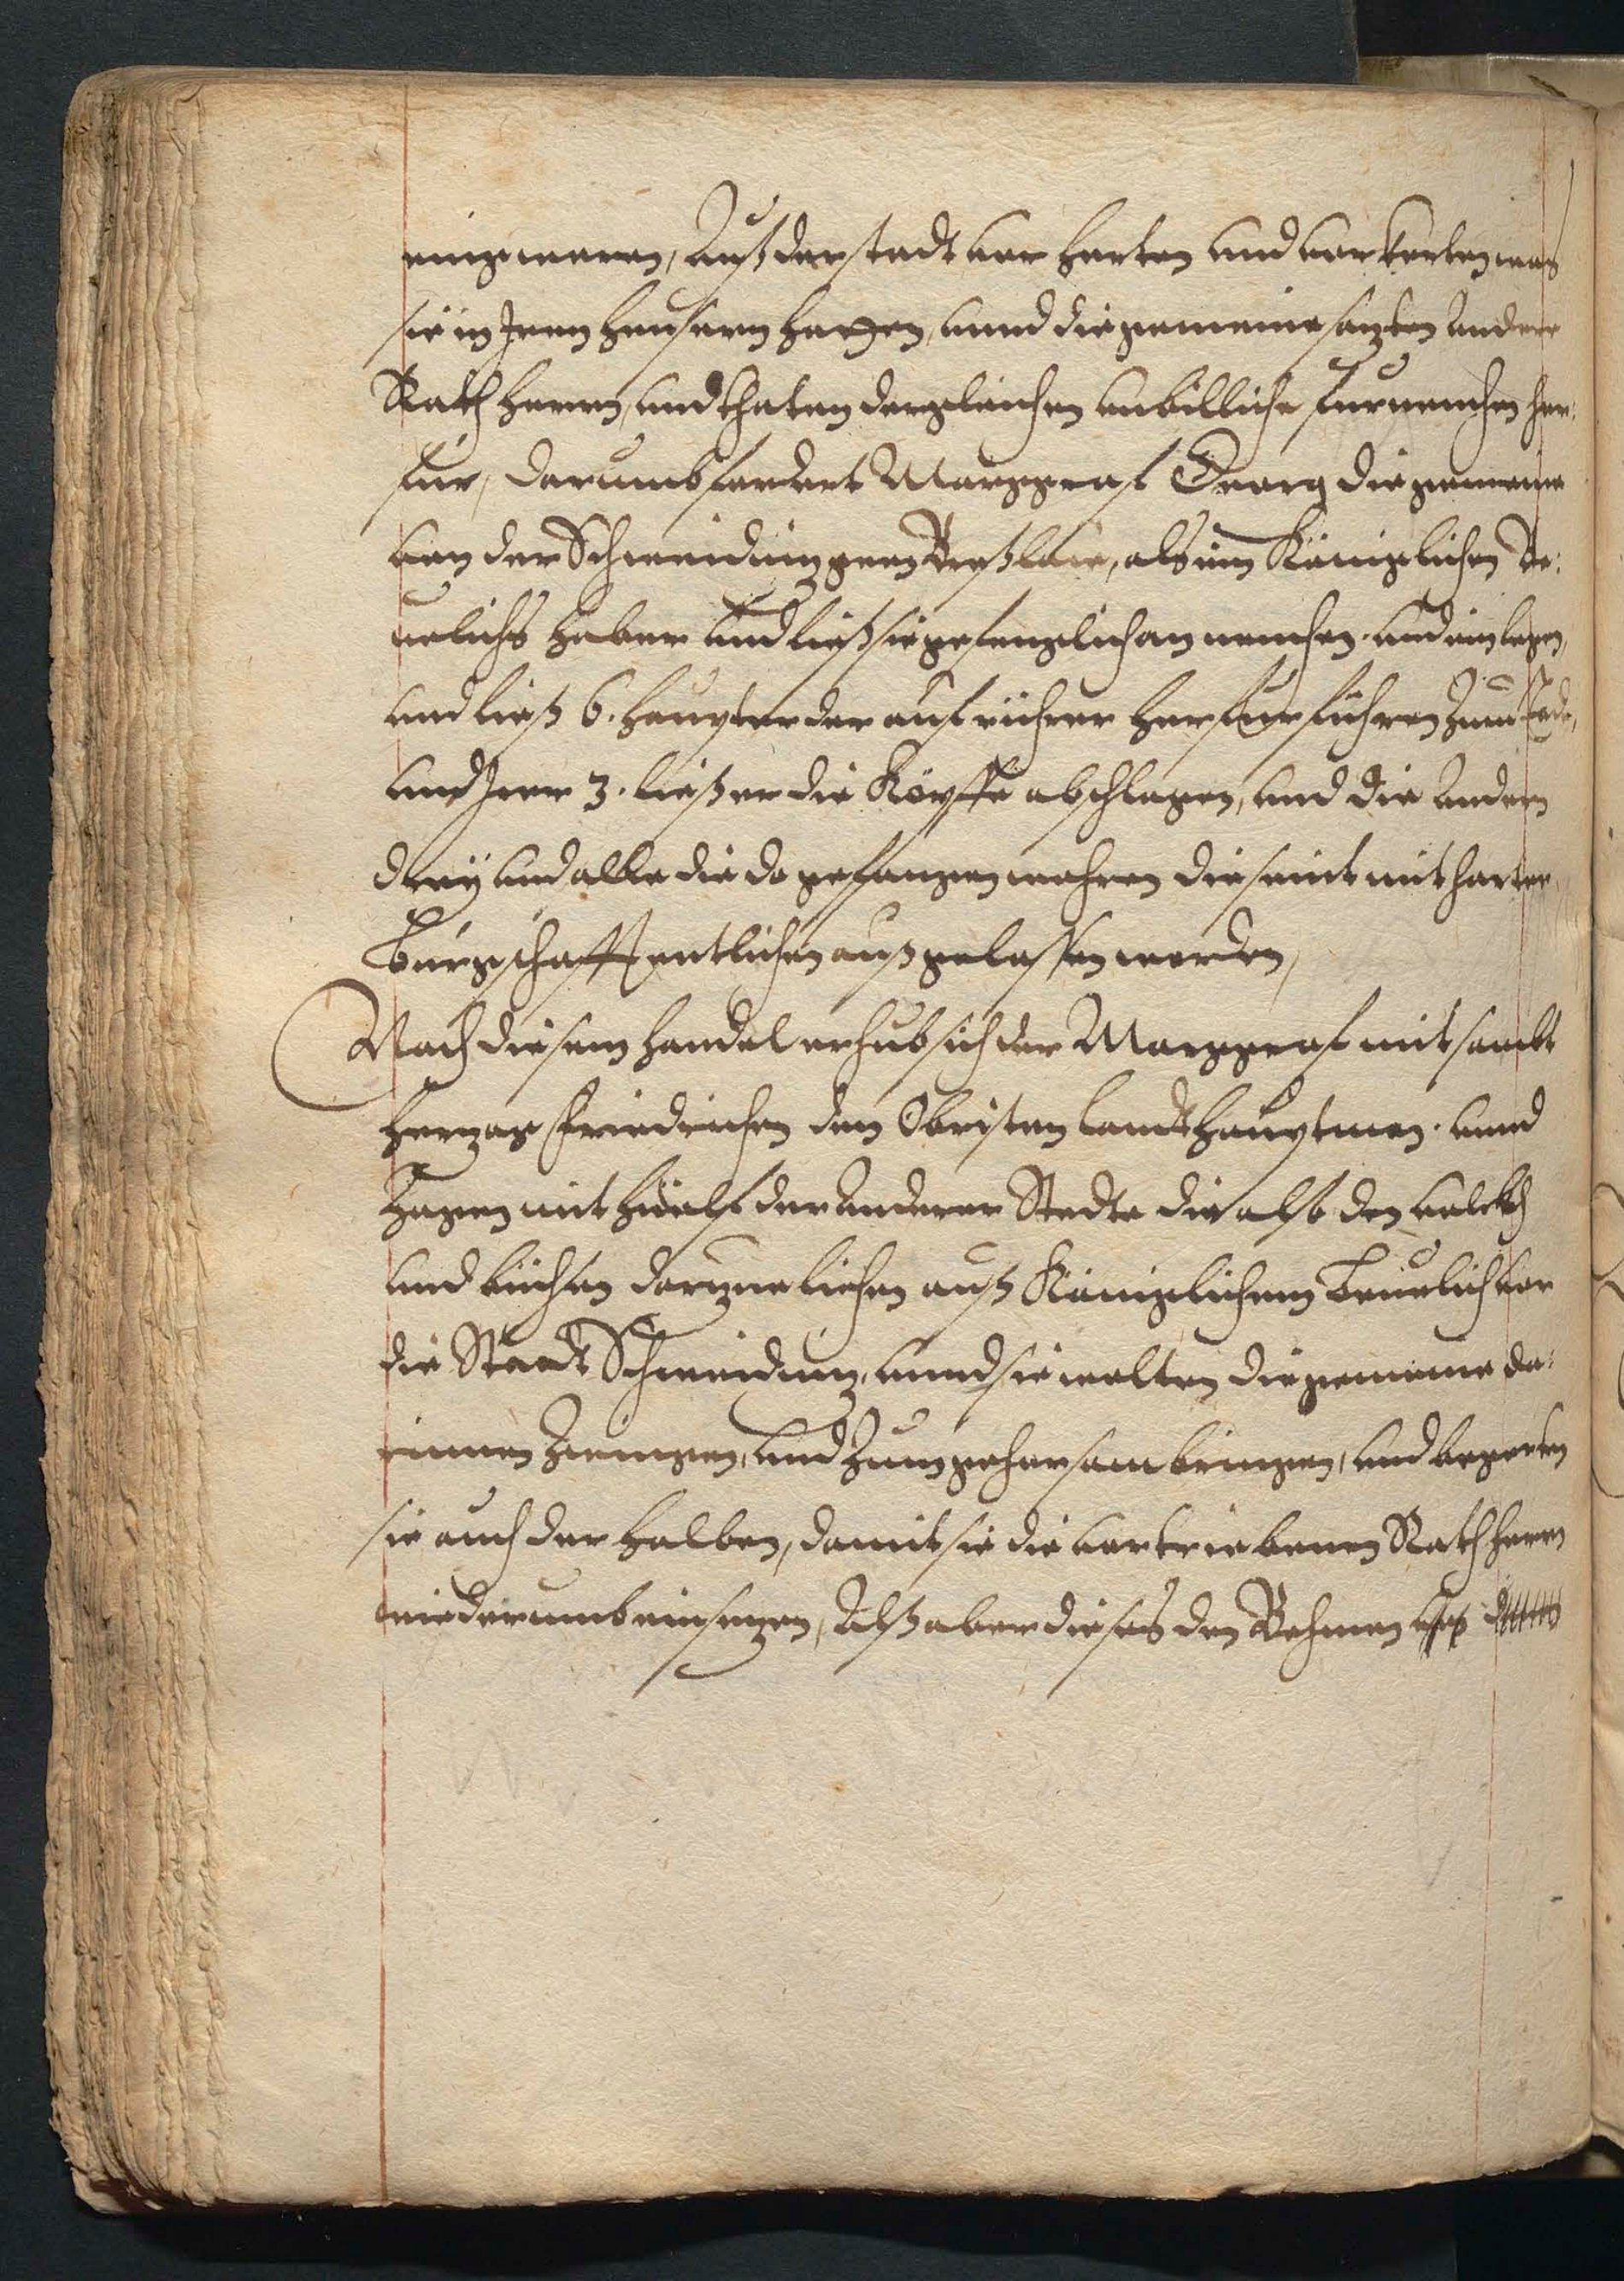 einig waren, Auß der stadt vor horten und vorkerten was
sie in Iren heusern hatten, unnd die gemeine satzten Andere
Rath herren, und thaten dergleichen unbilliche furnemhen her:
fur, darumb fordert Marggraf Georg die gemeine
von der Schweidnitz gen Preßlaw, als im Königlichen Be:
uelichs haber Und ließ sie gefenglich an nemhen. und ein legen,
und ließ 6. heupter der auf rührer herfur führen zum tode,
und Irer 3. ließ er die Köpffe abschlagen, und die Andern
dreÿ und alle die do gefangen wahren die seint mit harter
Bürgschafft entlichen auß gelassen worden,
Nach diesem handel erhub sich der Marggraf mit sambt
Hertzog Friedrichen dem Obristen landeshauptman. unnd
Zogen mit hülf der Anderer Stedte die also den volckh
und büchsen dartzue liehen auß Königlichem Beuelich vor
die Stadt Schweidnitz, unnd sie wolten die gemeine da:
rinnen Zwingen, und Zum gehorsam bringen, und begerten
sie auch der halben, damit sie die vortriebenen Rathherrn
wiederumb einsetzen, Alß aber dieses den Behmen